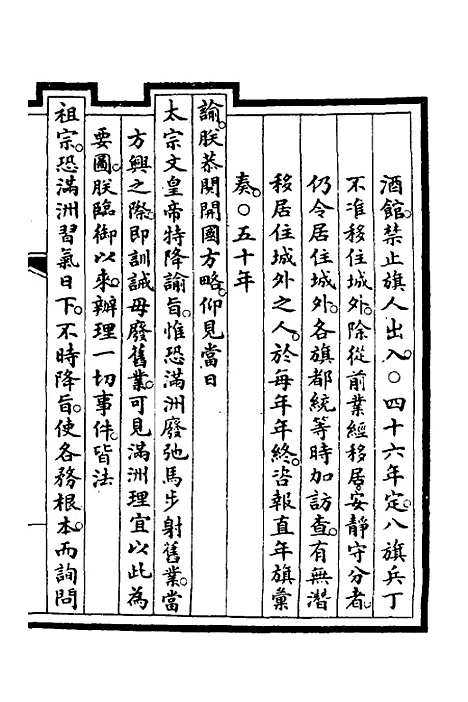 酒館。禁止旗人出入。○四十六年定。八旗兵丁
不准移住城外。除從前業經移居。安靜守分者。
仍令居住城外。各旗都統等時加訪查。有無潛
移居住城外之人。於每年年終。咨報直年旗彙
奏。○五十年
諭。朕恭閱開國方略。仰見當日
太宗文皇帝特降諭旨。惟恐滿洲廢弛馬步射舊業。當
方興之際。即訓誡毋廢舊業。可見滿洲理宜以此為
要圖。朕臨御以來。辦理一切事件。皆法
祖宗。恐滿洲習氣日下。不時降旨。使各務根本。而詢問